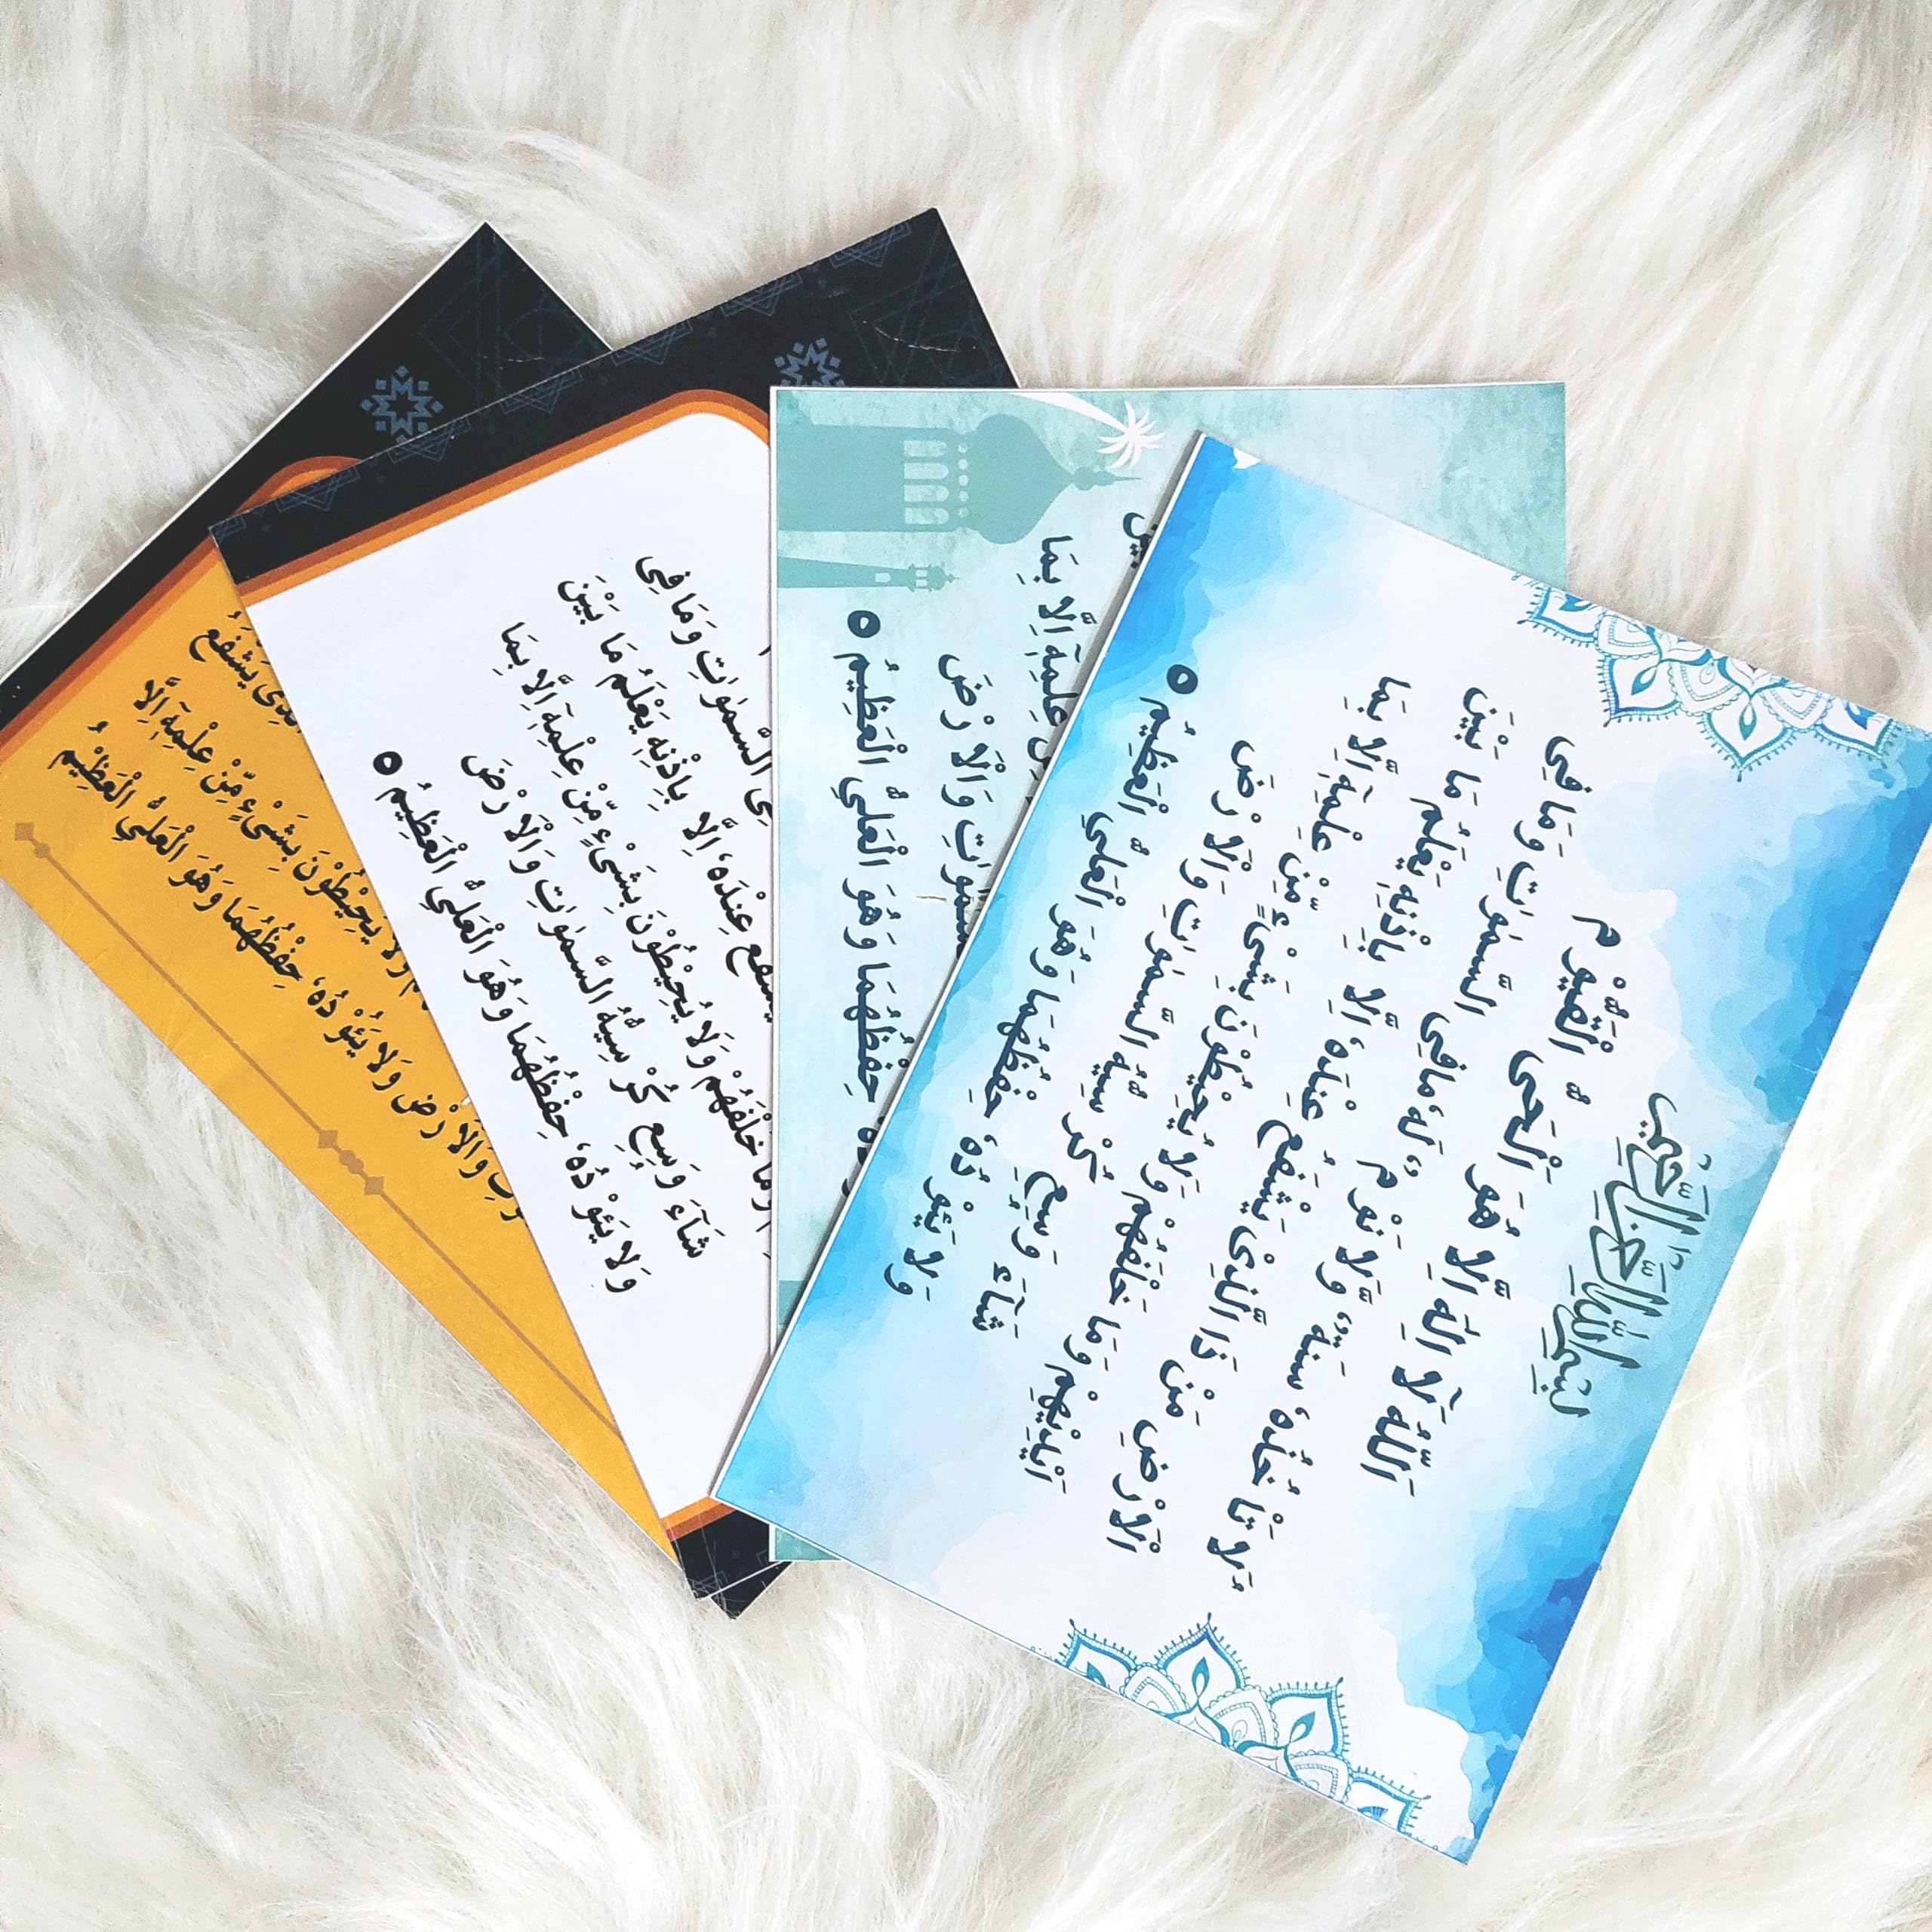 بِسْمِ اللّٰهِ الرَّحْمٰنِ الرَّحِيْمِ
اَللّٰهُ لَآ اِلٰهَ اِلَّا هُوَ اَلْحَىُّ الْقَيُّوْم
لَا تَاْ خُذُهٗ سِنَةٌ وَّلَا نَوْمٌ لَهٗ مَا فِى السَّمٰوٰتِ وَمَا فِى
الْاَرْضِ مَنْ ذَا الَّذِىْ يَشْفَعُ عِنْدَهٗ اِلَّا بِاِذْنِهٖ يَعْلَمُ مَا بَيْنَ
اَيْدِيْهِمْ وَمَا خَلْفَهُمْ وَلَا يُحِيْطُوْنَ بِشَىْءٍ مِّنْ عِلْمِهٖٓ اِلَّا بِمَا
شَآءَ وَسِعَ كُرْ سِيُّهُ السَّمٰوٰتِ وَالْاَرْضَ
وَلَا يَئُوْ دُهٗ حِفْظُهُمَا وَهُوَ الْعَلِىُّ الْعَظِيْمُ
عِلْمِهٖٓ اِلَّا بِمَا
وَالْاَرْضَ
حِفْظُهُمَا وَهُوَ الْعَلِىُّ الْعَظِيْمُ
السَّمٰوٰتِ وَمَا فِى
يَشْفَعُ عِنْدَهٗ اِلَّا بِاِذْنِهٖ يَعْلَمُ مَا بَيْنَ
خَلْفَهُمْ وَلَا يُحِيْطُوْنَ بِشَىْءٍ مِّنْ عِلْمِهٖٓ اِلَّا بِمَا
شَآءَ وَسِعَ كُرْ سِيُّهُ السَّمٰوٰتِ وَالْاَرْضَ
وَلَا يَئُوْ دُهٗ حِفْظُهُمَا وَهُوَ الْعَلِىُّ الْعَظِيْمُ
يَشْفَعُ
يُحِيْطُوْنَ بِشَىْءٍ مِّنْ عِلْمِهٖٓ اِلَّا
وَالْاَرْضَ وَلَا يَئُوْدُهٗ حِفْظُهُمَا وَهُوَ الْعَلِىُّ الْعَظِيْمُ